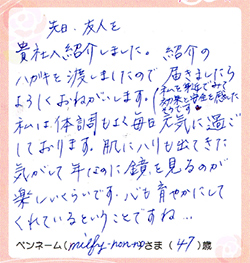 先日、友人を
貴社へ紹介しました。紹介の
ハガキを渡しましたので届きましたら
よろしくおねがいします。
私を身近でみて
効果と安全を感じた
そうです
私は体調もよく毎日元気に過ご
しております。肌にハリも出てきた
気がして年なのに鏡を見るのが
楽しいくらいです。心も育やかにして
くれているということですね…
ペンネーム(milfy-nonnoさま(47)歳